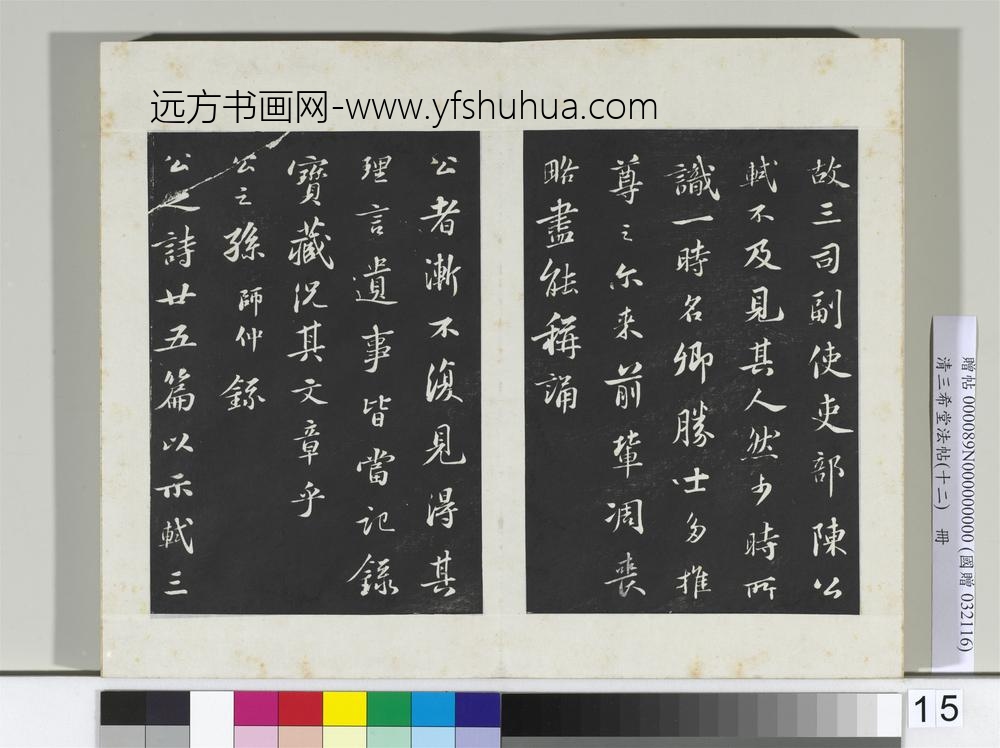 远方书画网-www.yfshuhua.com
故三司副使吏部陳公
軾不及見其人然少時所
識一時名卿勝士多推
尊之尔来前輩凋喪
略盡能稱誦
公者漸不復見得其
理言遺事皆當記錄
寳藏况其文章乎
公之孫師仲錄
公之詩廿五篇以示軾三
贈帖 000089N000000000 (國贈 032116)
清三希堂法帖(十二) 冊
15